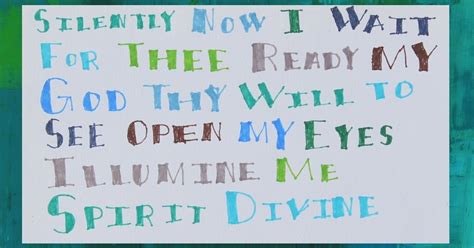 SILENTLY NOW I WAIT
FOR THEE READY MY
GOD THY WILL TO
SEE OPEN MY EYES
ILLUMINE ME
SPIRIT DIVINE